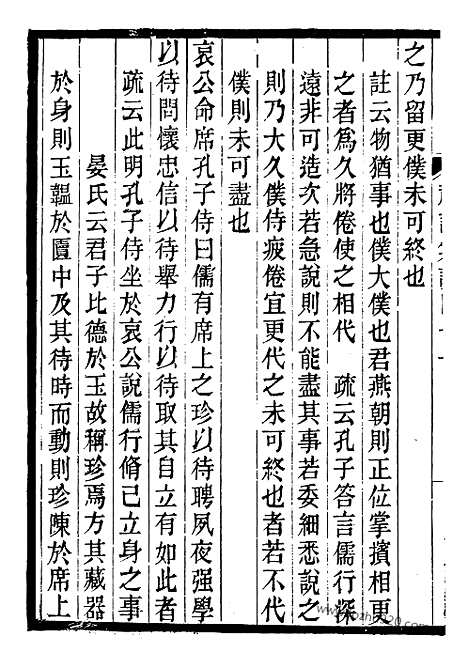 之乃留更僕未可終也
註云物猶事也僕大僕也君燕朝則正位掌擯相更
之者爲久將倦使之相代　疏云孔子答言儒行深
遠非可造次若急說則不能盡其事若委細悉說之
則乃大久僕侍疲倦宜更代之未可終也者若不代
僕則未可盡也
哀公命席孔子侍曰儒有席上之珍以待聘夙夜强學
以待問懷忠信以待舉力行以待取其自立有如此者
疏云此明孔子侍坐於哀公說儒行脩己立身之事
晏氏云君子比德於玉故稱珍焉方其藏器
於身則玉韞於匵中及其待時而動則珍陳於席上